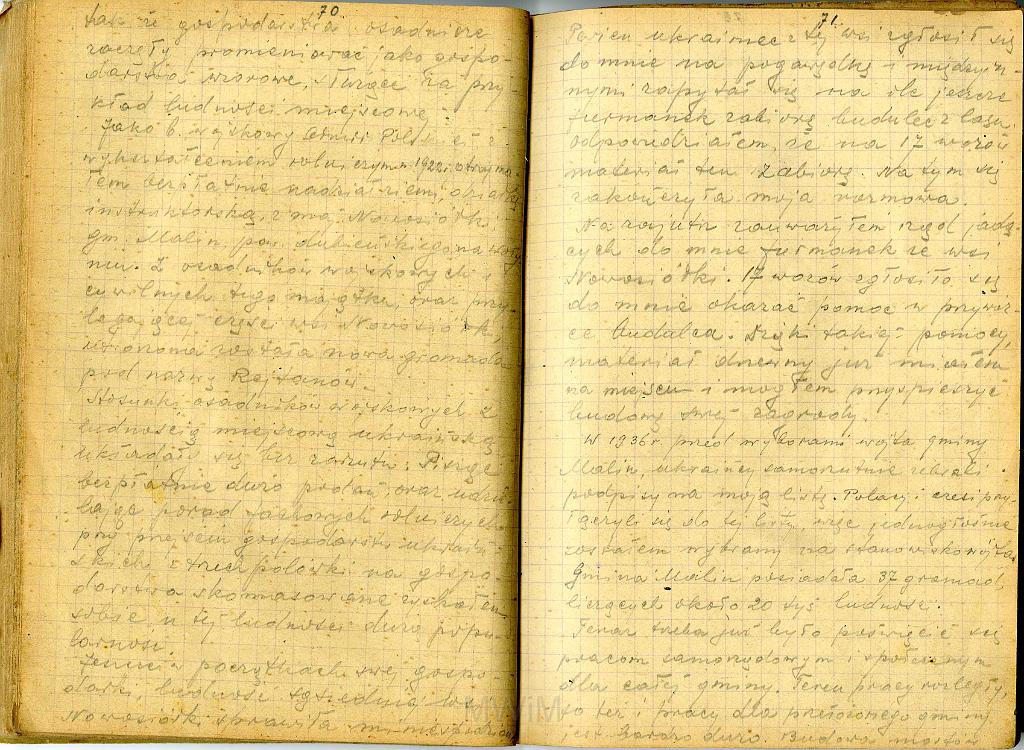 70
tak że gospodarstwa osadnicze
zaczęły promieniować jako gospo-
darstwa wzorowe, służące za przy-
kład ludności miejscowej.
Jako b. wojskowy Armii Polskiej z
wykształceniem rolniczym w 1922 r. otrzyma-
łem bezpłatnie nadział ziemi, działkę
instruktorską, z maj. Nowosiółki,
gm. Malin, pow. dubieńskiego na Woły-
niu. Z osadników wojskowych i
cywilnych tego majątku, oraz przy-
legającej części wsi Nowosiółki,
utworzona została nowa gromada
pod nazwą Rejtanów.
Stosunki osadników wojskowych z
ludnością miejscową ukraińską
układały się bez zarzutu. Pisząc
bezpłatnie dużo podań, oraz udzie-
lając porad fachowych rolniczych
przy przejściu gospodarstw ukraiń-
skich z trzechpolówki na gospo-
darstwa skomasowane zyskałem
sobie u tej ludności dużo popu-
larności.
Jeszcze w początkach swej gospo-
darki, ludność sąsiedniej wsi
Nowosiółki sprawiła mi niespodzian
71.
Pewien ukrainiec z tej wsi zgłosił się
do mnie na pogawędkę i między in-
nymi zapytał się na ile jeszcze
furmanek zabiorę budulec z lasu.
Odpowiedziałem, że na 17 wozów
materiał ten zabiorę. Na tym się
zakończyła moja rozmowa.
Na zajutrz zauważyłem rząd jadą-
cych do mnie furmanek ze wsi
Nowosiółki. 17 wozów zgłosiło się
do mnie okazać pomoc w przywóz-
ce budulca. Dzięki takiej pomocy,
materiał drzewny już miałem
na miejscu i mogłem przyspieszyć
budowę swej zagrody.
W 1936 r. przed wyborami wójta gminy
Malin ukraińcy samorzutnie zebrali
podpisy na moją listę. Polacy i czesi przy-
łączyli się do tej listy, więc jednogłośnie
zostałem wybrany na stanowisko wójta.
Gmina Malin posiadała 37 gromad,
liczących około 20 tyś ludności.
Teraz trzeba już było poświęcić się
pracom samorządowym i społecznym
dla całej gminy. Teren pracy rozległy,
to też i pracy dla przełożonego gminy
jest bardzo dużo. Budowa mostów